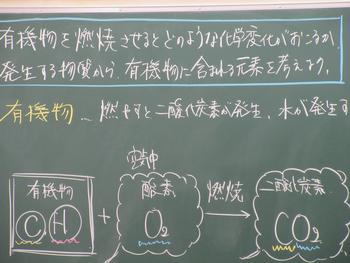 有機物を燃焼させるとどのような化学変化がおこるか。
発生する物質から、有機物に含まれる元素を考えよう。
有機物… 燃やすと二酸化炭素が発生、水が発生す
空気中
有機物 酸素 燃焼 二酸化炭素
C H + O₂ → CO₂